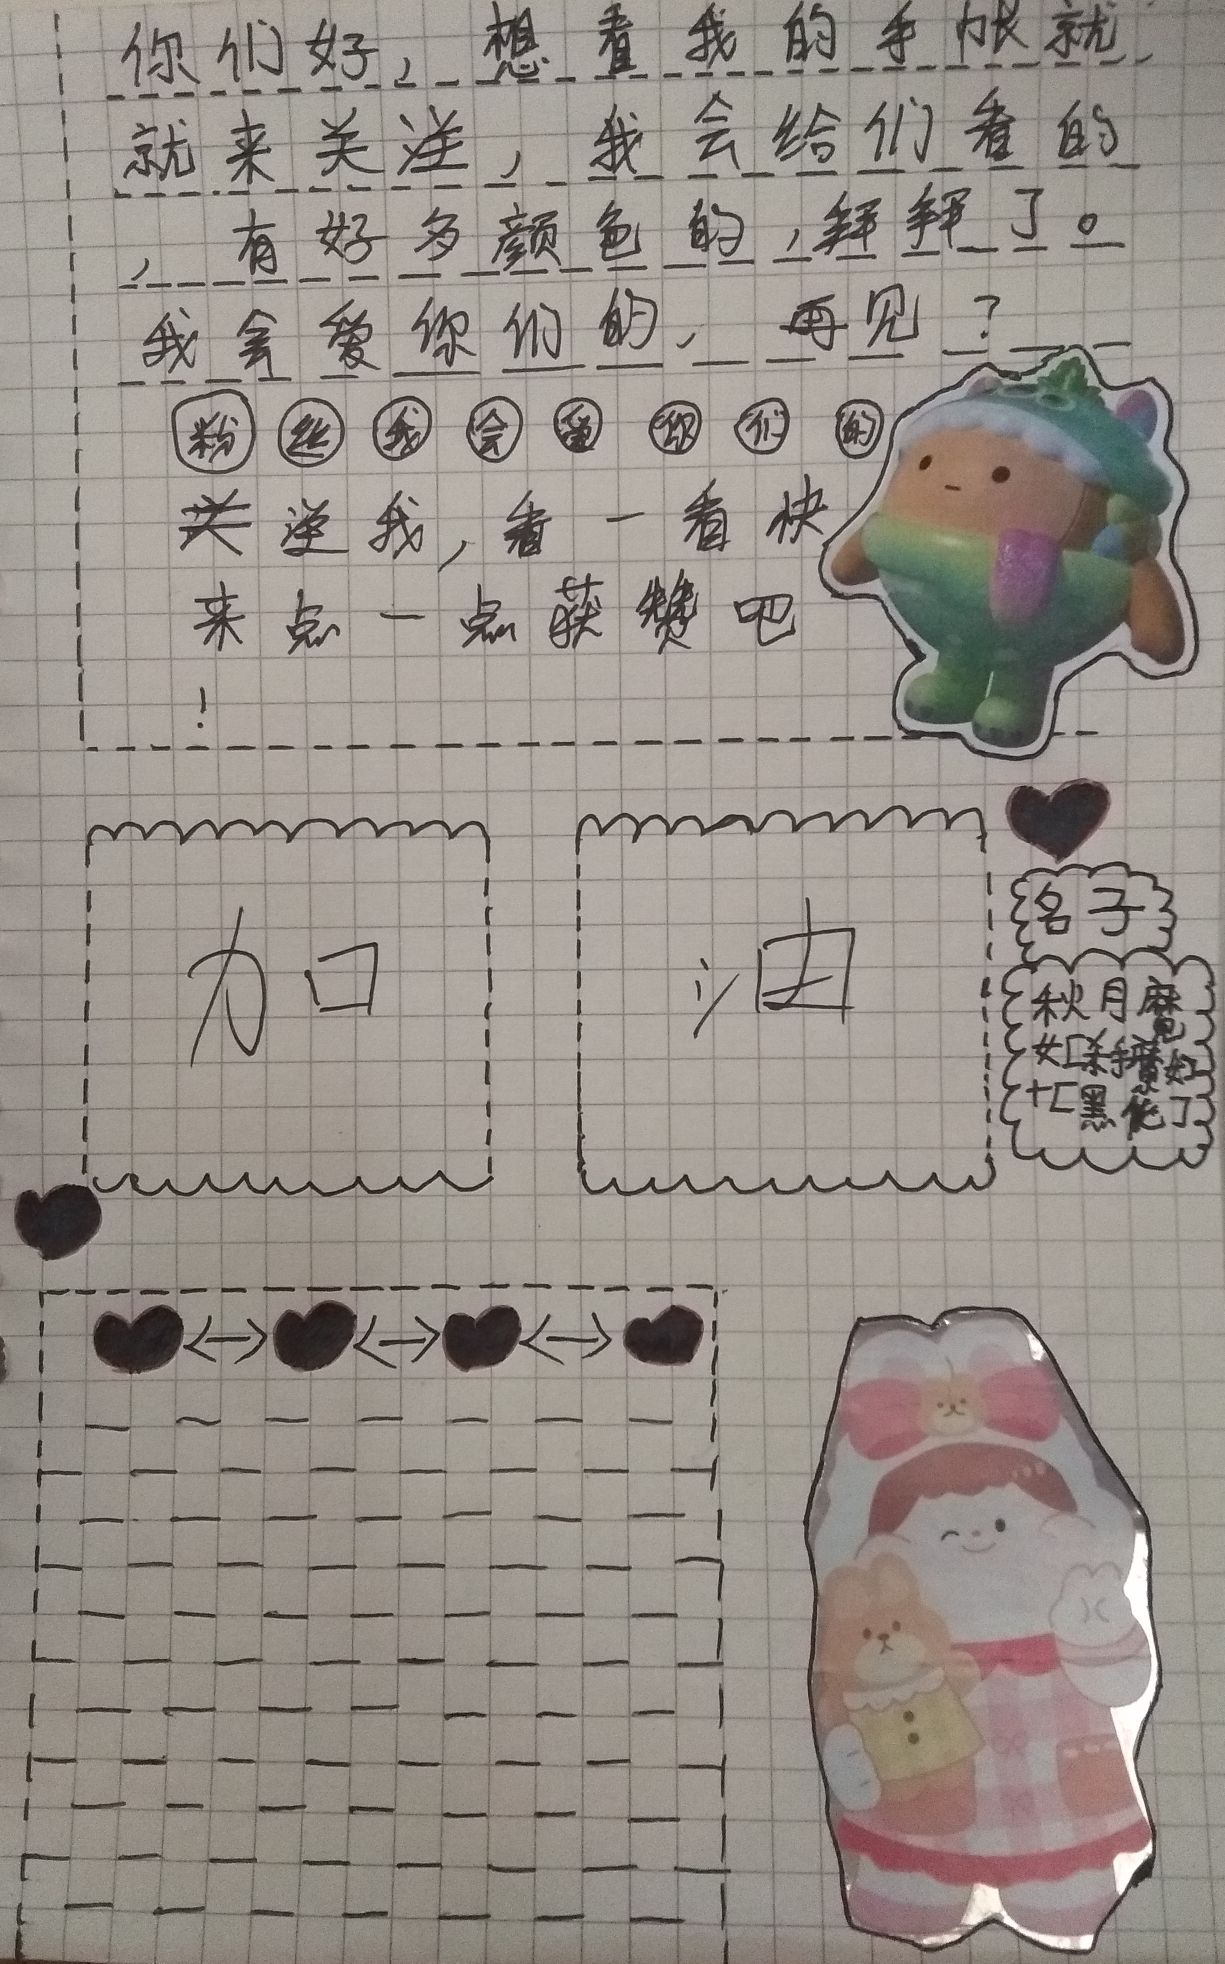 你们好，想看我的手帐就
就来关注，我会给们看的
，有好多颜色的，拜拜了。
我会爱你们的，再见？
粉丝我会爱你们的
关注我，看一看快
来点一点获赞吧
！
加
油
名子
秋月魔
女
黑能了